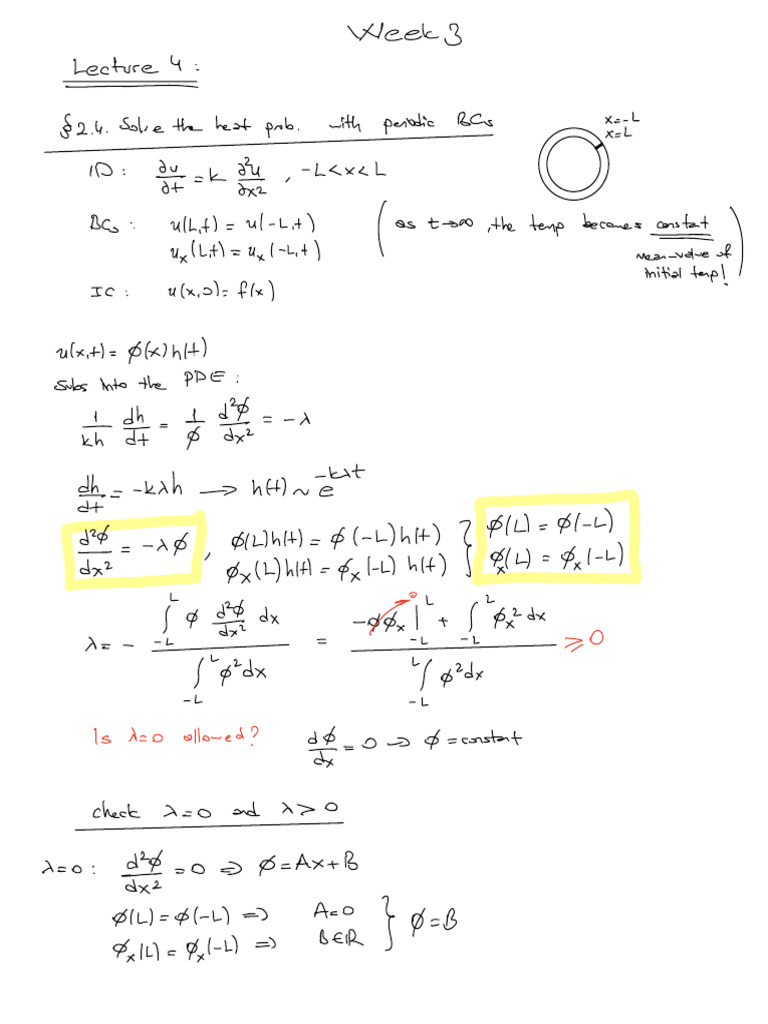 Week 3
Lecture 4 :
§ 2.4. Solve the heat prob. with periodic BCs
x=-L
x=L
1D : ∂u/∂t = k ∂²u/∂x² , -L<x<L
BCs : u(L,t) = u(-L,t)
u_x(L,t) = u_x(-L,t)
(as t→∞, the temp becomes constant
mean-value of
initial temp!)
IC : u(x,0) = f(x)
u(x,t) = φ(x)h(t)
Subs into the PDE :
1/kh dh/dt = 1/φ d²φ/dx² = -λ
dh/dt = -kλh → h(t) ~ e^{-kλt}
d²φ/dx² = -λφ , φ(L)h(t) = φ(-L)h(t) } φ(L) = φ(-L)
φ_x(L)h(t) = φ_x(-L) h(t) } φ_x(L) = φ_x(-L)
λ = - ∫_{-L}^{L} φ d²φ/dx² dx / ∫_{-L}^{L} φ² dx = (-φφ_x |_{-L}^{L} → 0 + ∫_{-L}^{L} φ_x² dx) / ∫_{-L}^{L} φ² dx ≥ 0
Is λ=0 allowed? dφ/dx = 0 → φ = constant
check λ=0 and λ>0
λ=0 : d²φ/dx² = 0 ⇒ φ = Ax+B
φ(L) = φ(-L) ⇒ A=0
φ_x(L) = φ_x(-L) ⇒ B∈ℝ } φ = B